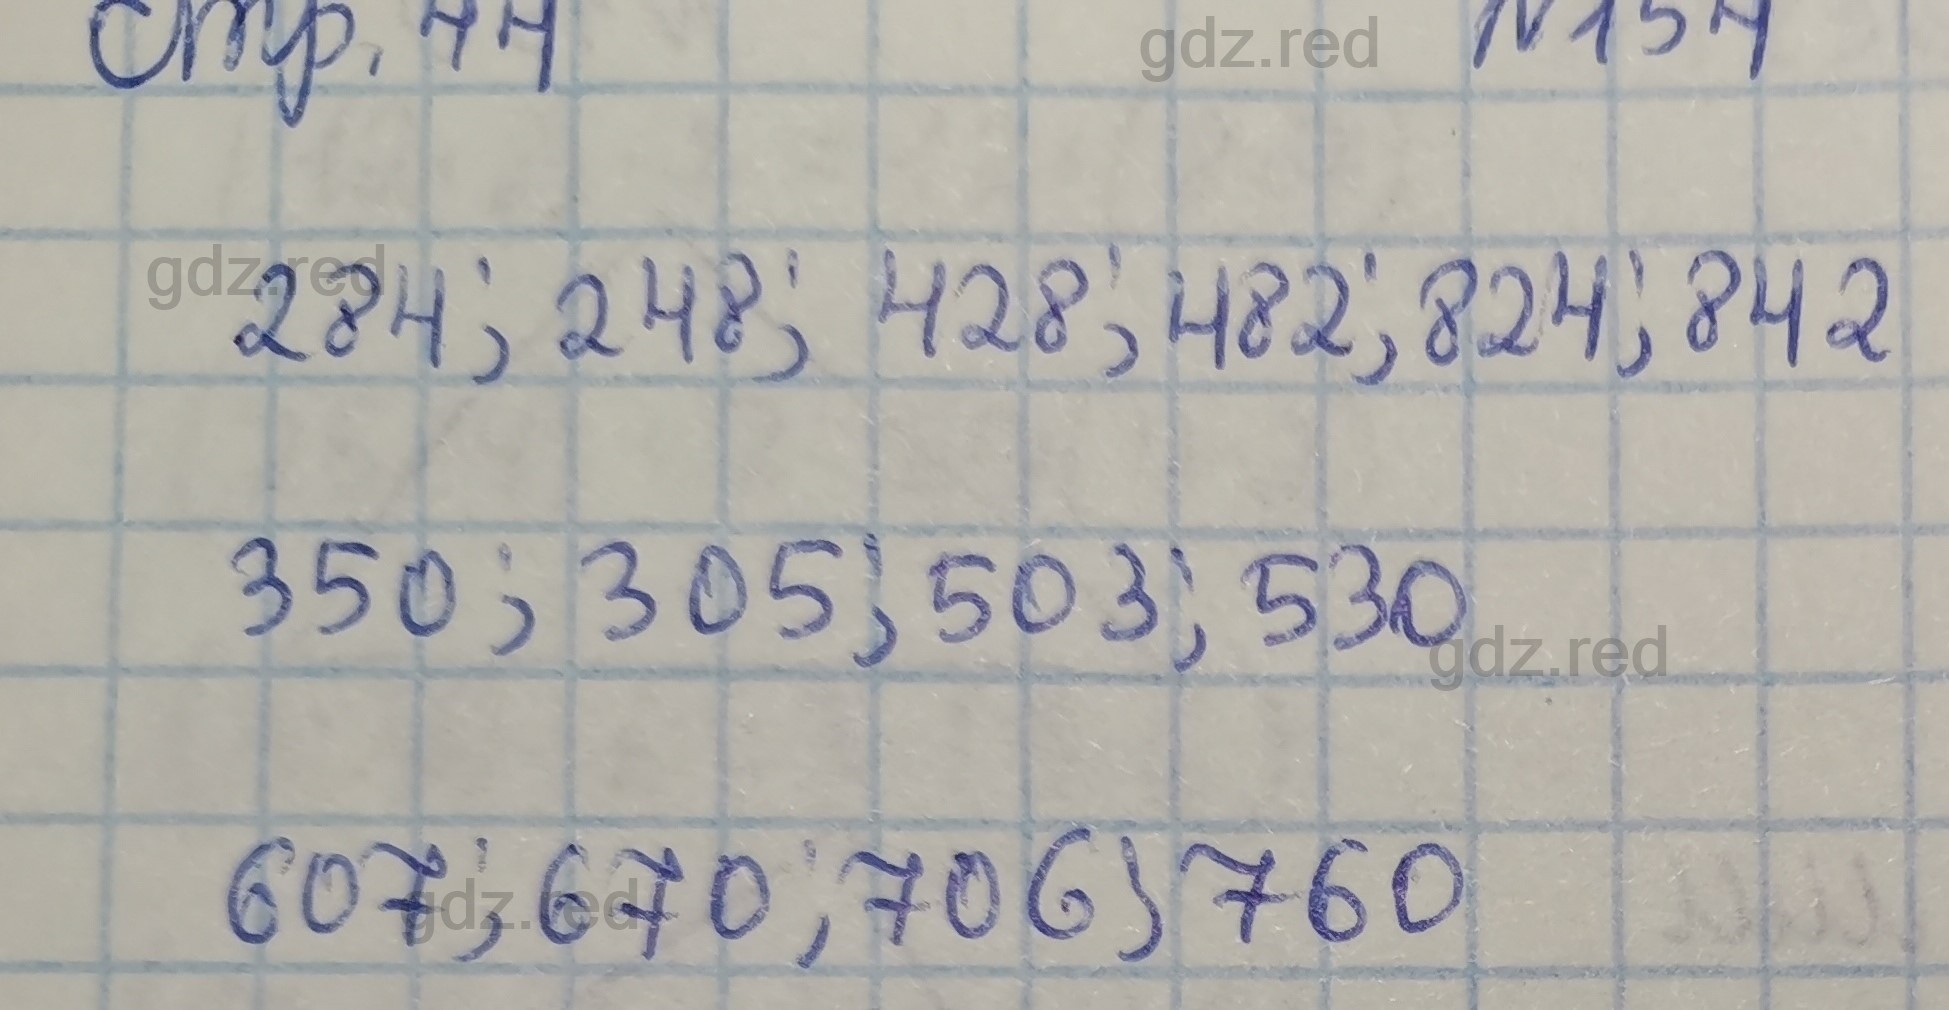 Стр. 44 gdz.red №154
gdz.red
284; 248; 428; 482; 824; 842
350; 305; 503; 530
gdz.red
607; 670; 706; 760
gdz.red